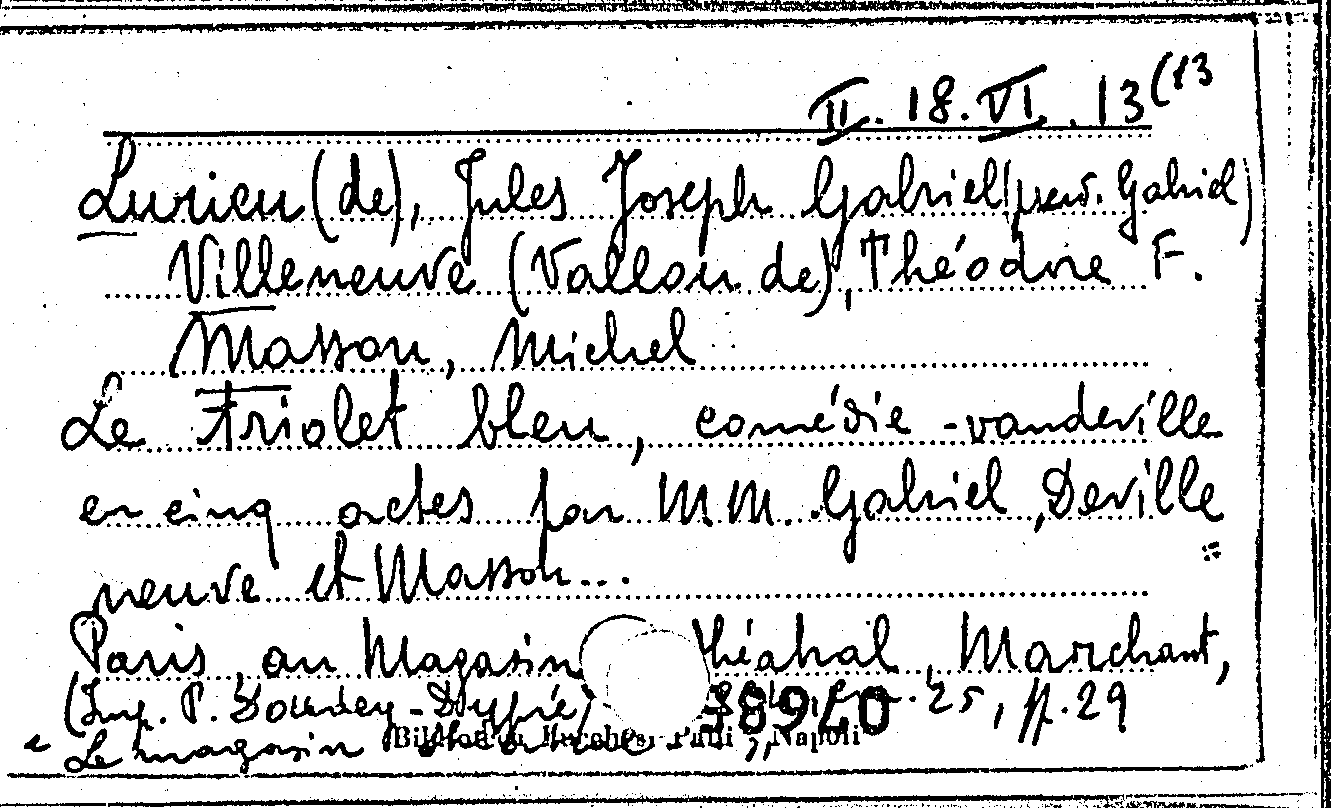 II. 18. VI. 13(13
Lurieu (de), Jules Joseph Gabriel (pseud. Gabriel)
Villeneuve (Vallou de), Théodore F.
Masson, Michel
Le Triolet bleu, comédie-vaudeville
en cinq actes par MM. Gabriel, Deville
neuve et Masson...
Paris, au Magasin théatral, Marchant,
(Imp. P. Dondey-Dupré) 25, pp. 29
Le magasin
Napoli